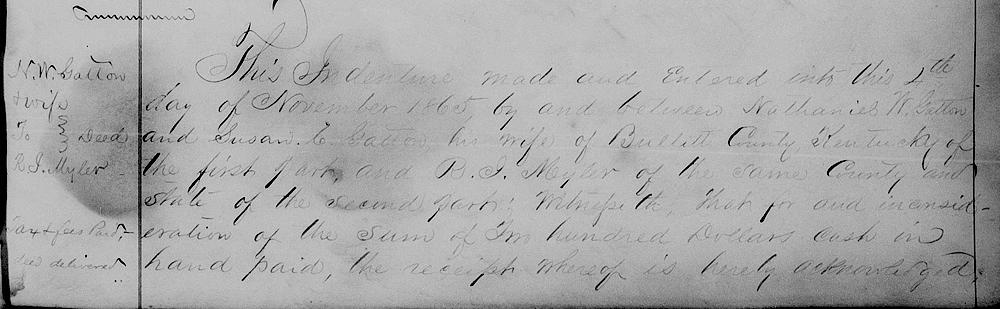 N. W. Gatton
& wife
To } Deed
R. J. Myler
Tax & fees Paid,
deed delivered
This Indenture made and Entered into this 4th
day of November 1865, by and between Nathaniel W. Gatton
and Susan. E. Gatton, his wife of Bullitt County, Kentucky of
the first part, and R. J. Myler of the same County and
State of the second part: Witnesseth, that for and inconsid-
eration of the sum of Two hundred Dollars cash in
hand paid, the receipt whereof is hereby acknowledged,